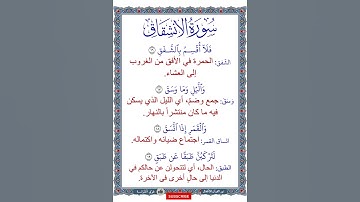 سُورَةُ الانشِقَاقِ
فَلَآ أُقْسِمُ بِٱلشَّفَقِ ١٦
الشَّفَق: الحمرة في الأفق من الغروب
إلى العشاء.
وَٱلَّيْلِ وَمَا وَسَقَ ١٧
وَسَقَ: جمع وضمّ، أي الليل الذي يسكن
فيه ما كان منتشراً بالنهار.
وَٱلْقَمَرِ إِذَا ٱتَّسَقَ ١٨
اتساق القمر: اجتماع ضيائه واكتماله.
لَتَرْكَبُنَّ طَبَقًا عَن طَبَقٍ ١٩
الطبق: الحال، أي لتتحولن عن حالكم في
الدنيا إلى حالٍ أخرى في الآخرة.
SUBSCRIBE